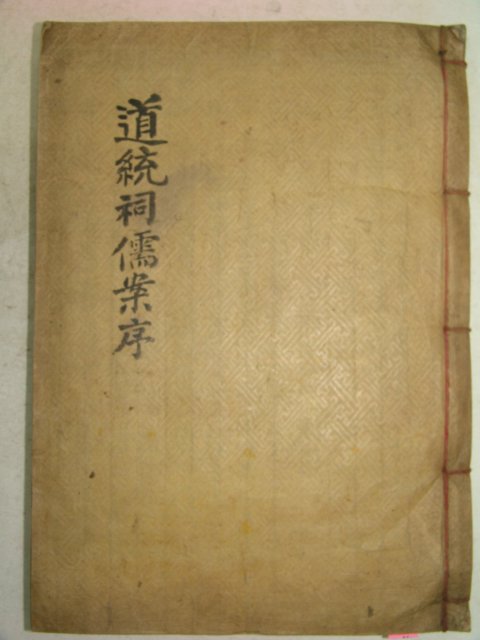 道統祠儒案序